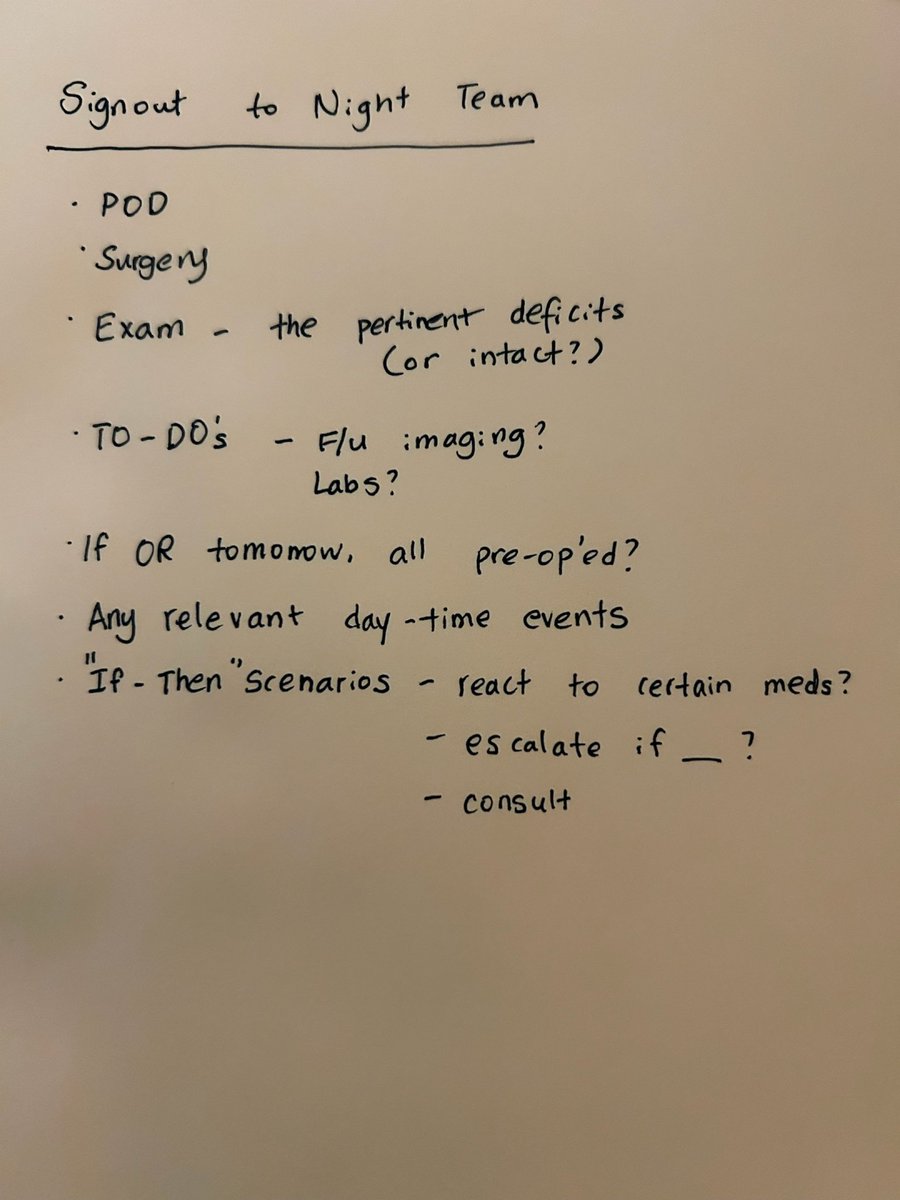 Signout to Night Team
· POD
· Surgery
· Exam - the pertinent deficits
(or intact?)
· TO-DO's - F/u imaging?
Labs?
· If OR tomorrow, all pre-op'ed?
· Any relevant day-time events
· "If-Then" Scenarios - react to certain meds?
- escalate if __ ?
- consult